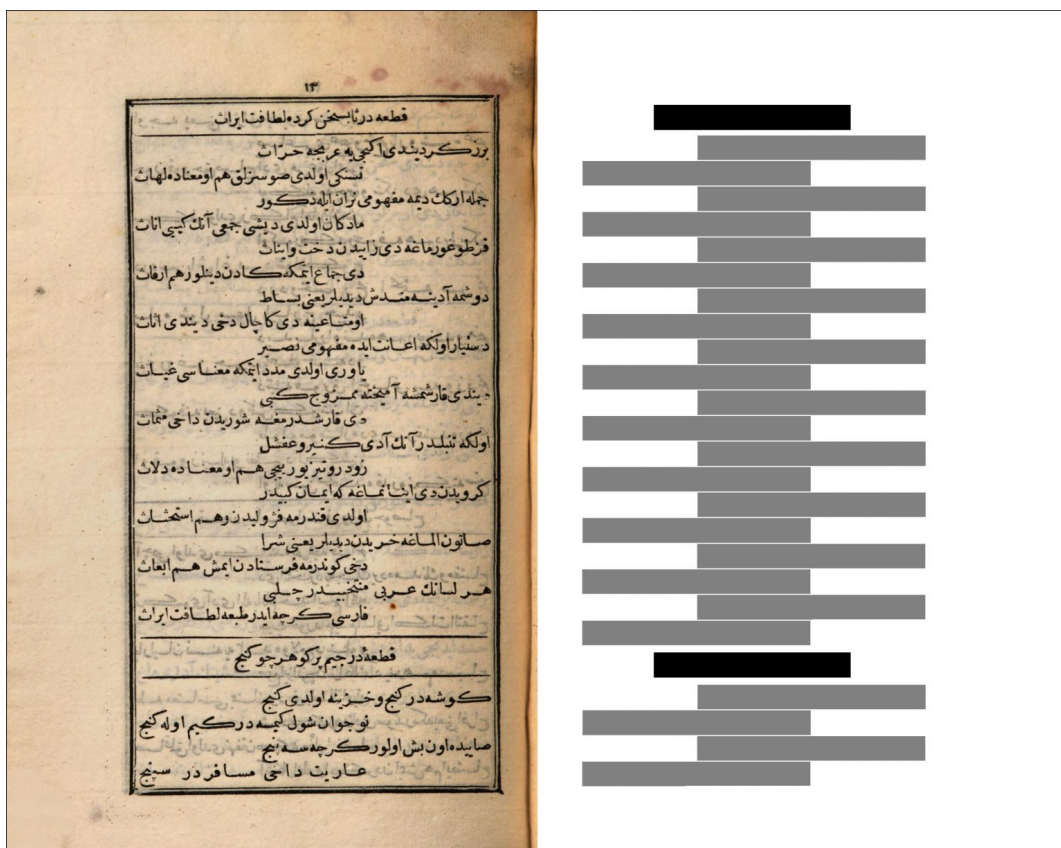 ١٣
قطعه در ثا بسخن كرده لطافت ايراث
برزكر ديندى اكنجى يه عربجه حراث
تسنكى اولدى صوسزلق هم اومعناده لهاث
جمله اركك ديمه مفهومى نران ايله ذكور
مادكان اولدى ديشى جمعى آنك كيبى اناث
فرطوغورماغه دى زاييدن دخت وابناث
دى جماع ايتمكه كادن دينلور هم ارفاث
دوشمه آدينه مندش ديديلر يعنى بساط
اومتاعينه دى كاچال دخى ديندى اثاث
دستيار اولكه اعانت ايده مفهومى نصير
ياورى اولدى مدد ايتمكه معناسى غياث
ديندى قارشمشه آميخته ممزوج كبى
دى قارشدرمغه شوريدن داخى مثماث
اولكه تنبلدر آنك آدى كنبر وعفشل
زود روتيز يوريجى هم اومعناده دلاث
كرويدن دى اينانماغه كه ايمان كبيدر
اولدى قندرمه فژوليدن وهم استحثاث
صاتون الماغه خريدن ديديلر يعنى شرا
دخى كوندرمه فرستادن ايمش هم ابعاث
هر لسانك عربى منتخبيدر چلبى
فارسى كرچه ايدر طبعه لطافت ايراث
قطعه در جيم پر كوهر چو كنج
كوشه در كنج وخزينه اولدى كنج
نوجوان شول كيمسه در كيم اوله كنج
صاييده اون بش اولور كرچه سه پنج
عاريت داخى مسافر در سپنج